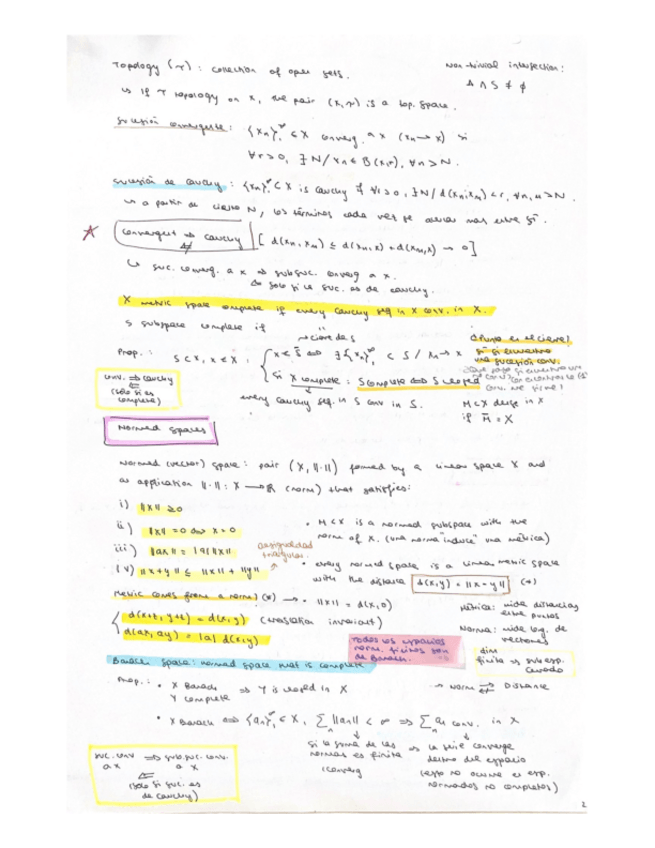 Topology (τ): collection of open sets.
non-trivial intersection:
A ∩ S ≠ ∅
↳ If τ topology on X, the pair (X,τ) is a top. space.
Sucesión convergente: {xn}₁^∞ ⊂ X converg. a x (xn→x) si
∀r>0, ∃N / xn ∈ B(x,r), ∀n>N.
Sucesión de Cauchy: {xn}₁^∞ ⊂ X is Cauchy if ∀r>0, ∃N / d(xn,xm)<r, ∀n,m>N
↳ a partir de cierto N, los términos cada vez se acercan mas entre sí.
Convergent ⇒ Cauchy [d(xn,xm) ≤ d(xn,x)+d(xm,x) → 0]
↳ suc. converg. a x ⇒ subsuc. converg a x.
⇐ solo si la suc. es de Cauchy.
X metric space complete if every Cauchy seq in X conv. in X.
S subspace complete if
Prop.: S⊂X, x∈X,
cierre de S
x∈S̄ ⇔ ∃{xn}₁^∞ ⊂ S / xn→x
si X complete: S complete ⇔ S closed
every Cauchy seq. in S conv in S.
∃ punto en el cierre
si encuentro
una sucesión conv.
M⊂X dense in X
if M̄ = X
conv. ⇒ Cauchy
⇐
(solo si es
completo)
Normed Spaces
Normed (vector) space: pair (X, ||·||) formed by a linear space X and
an application ||·||: X → ℝ (norm) that satisfies:
i) ||x|| ≥ 0
ii) ||x|| = 0 ⇔ x = 0
iii) ||ax|| = |a| ||x||
iv) ||x+y|| ≤ ||x|| + ||y||
desigualdad
triangular
• M⊂X is a normed subspace with the
norm of X. (una norma "induce" una métrica)
• every normed space is a linear metric space
with the distance d(x,y) = ||x-y|| (*)
Metric comes from a norm (*) → • ||x|| = d(x,0)
d(x+z, y+z) = d(x,y) (translation invariant)
d(ax, ay) = |a| d(x,y)
Métrica: mide distancias
entre puntos
Norma: mide long. de
vectores
Todos los espacios
norm. finitos son
de Banach.
dim
finita ⇒ subesp.
cerrado
Banach space: normed space that is complete
→ Norm ⇄ Distance
Prop.: • X Banach ⇒ Y is closed in X
Y complete
• X Banach ⇔ {an}₁^∞ ⊂ X, Σ ||an|| < ∞ ⇒ Σ an conv. in X
n
n
Si la suma de las
normas es finita
(converg
⇒ la serie converge
dentro del espacio
(esto no ocurre en esp.
normados no completos)
suc. conv ⇒ subsuc. conv.
a x a x
⇐
(solo si suc. es
de Cauchy)
2